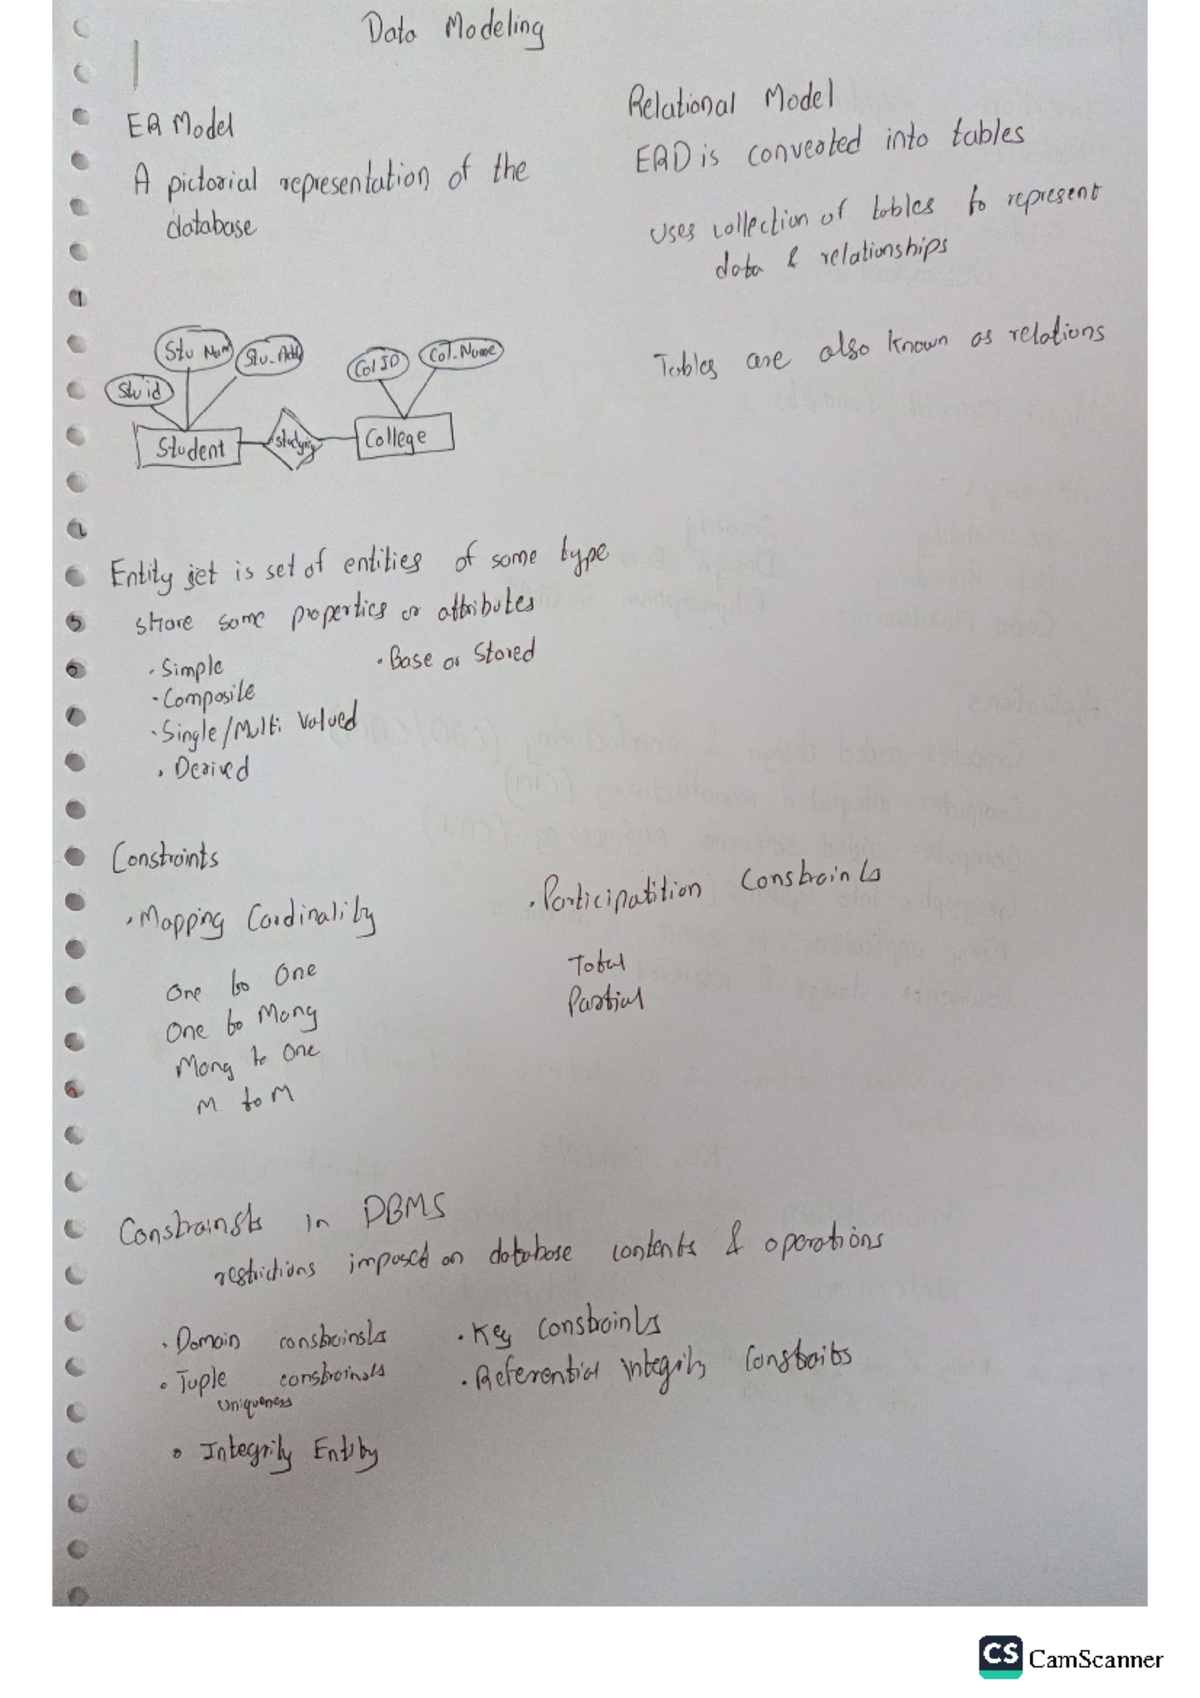 Data Modeling
ER Model
A pictorial representation of the
database
Relational Model
ERD is converted into tables
Uses collection of tables to represent
data & relationships
Tables are also known as relations
Stu Nam
Stu_Add
Stu id
Col ID
Col_Name
Student
studying
College
Entity set is set of entities of some type
share some properties or attributes
· Simple
· Composite
· Single/Multi valued
· Derived
· Base or Stored
Constraints
· Mapping Cardinality
One to One
One to Many
Many to One
M to M
· Participatition Constraints
Total
Partial
Constrainsts in DBMS
restrictions imposed on database contents & operations
· Domain constrainsts
· Tuple constrainsts
Uniqueness
· Integrity Entity
· Key Constraints
· Referential integrity constraits
CS CamScanner